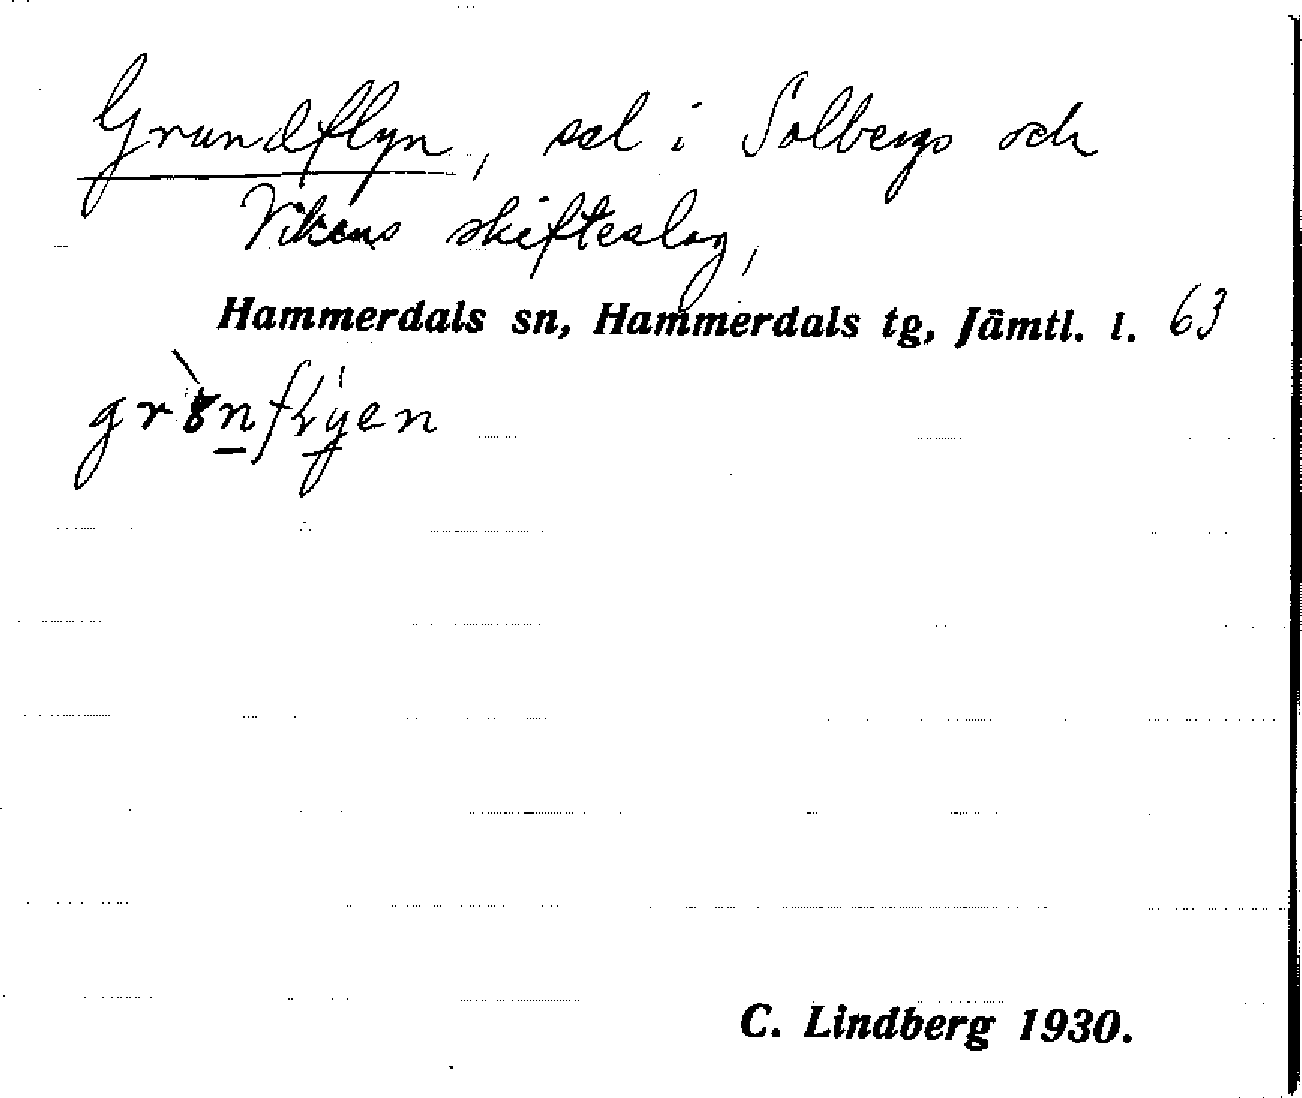 Grundflyn, sel i Solbergs och
Vikens skifteslag,
Hammerdals sn, Hammerdals tg, Jämtl. l. 63
C. Lindberg 1930.